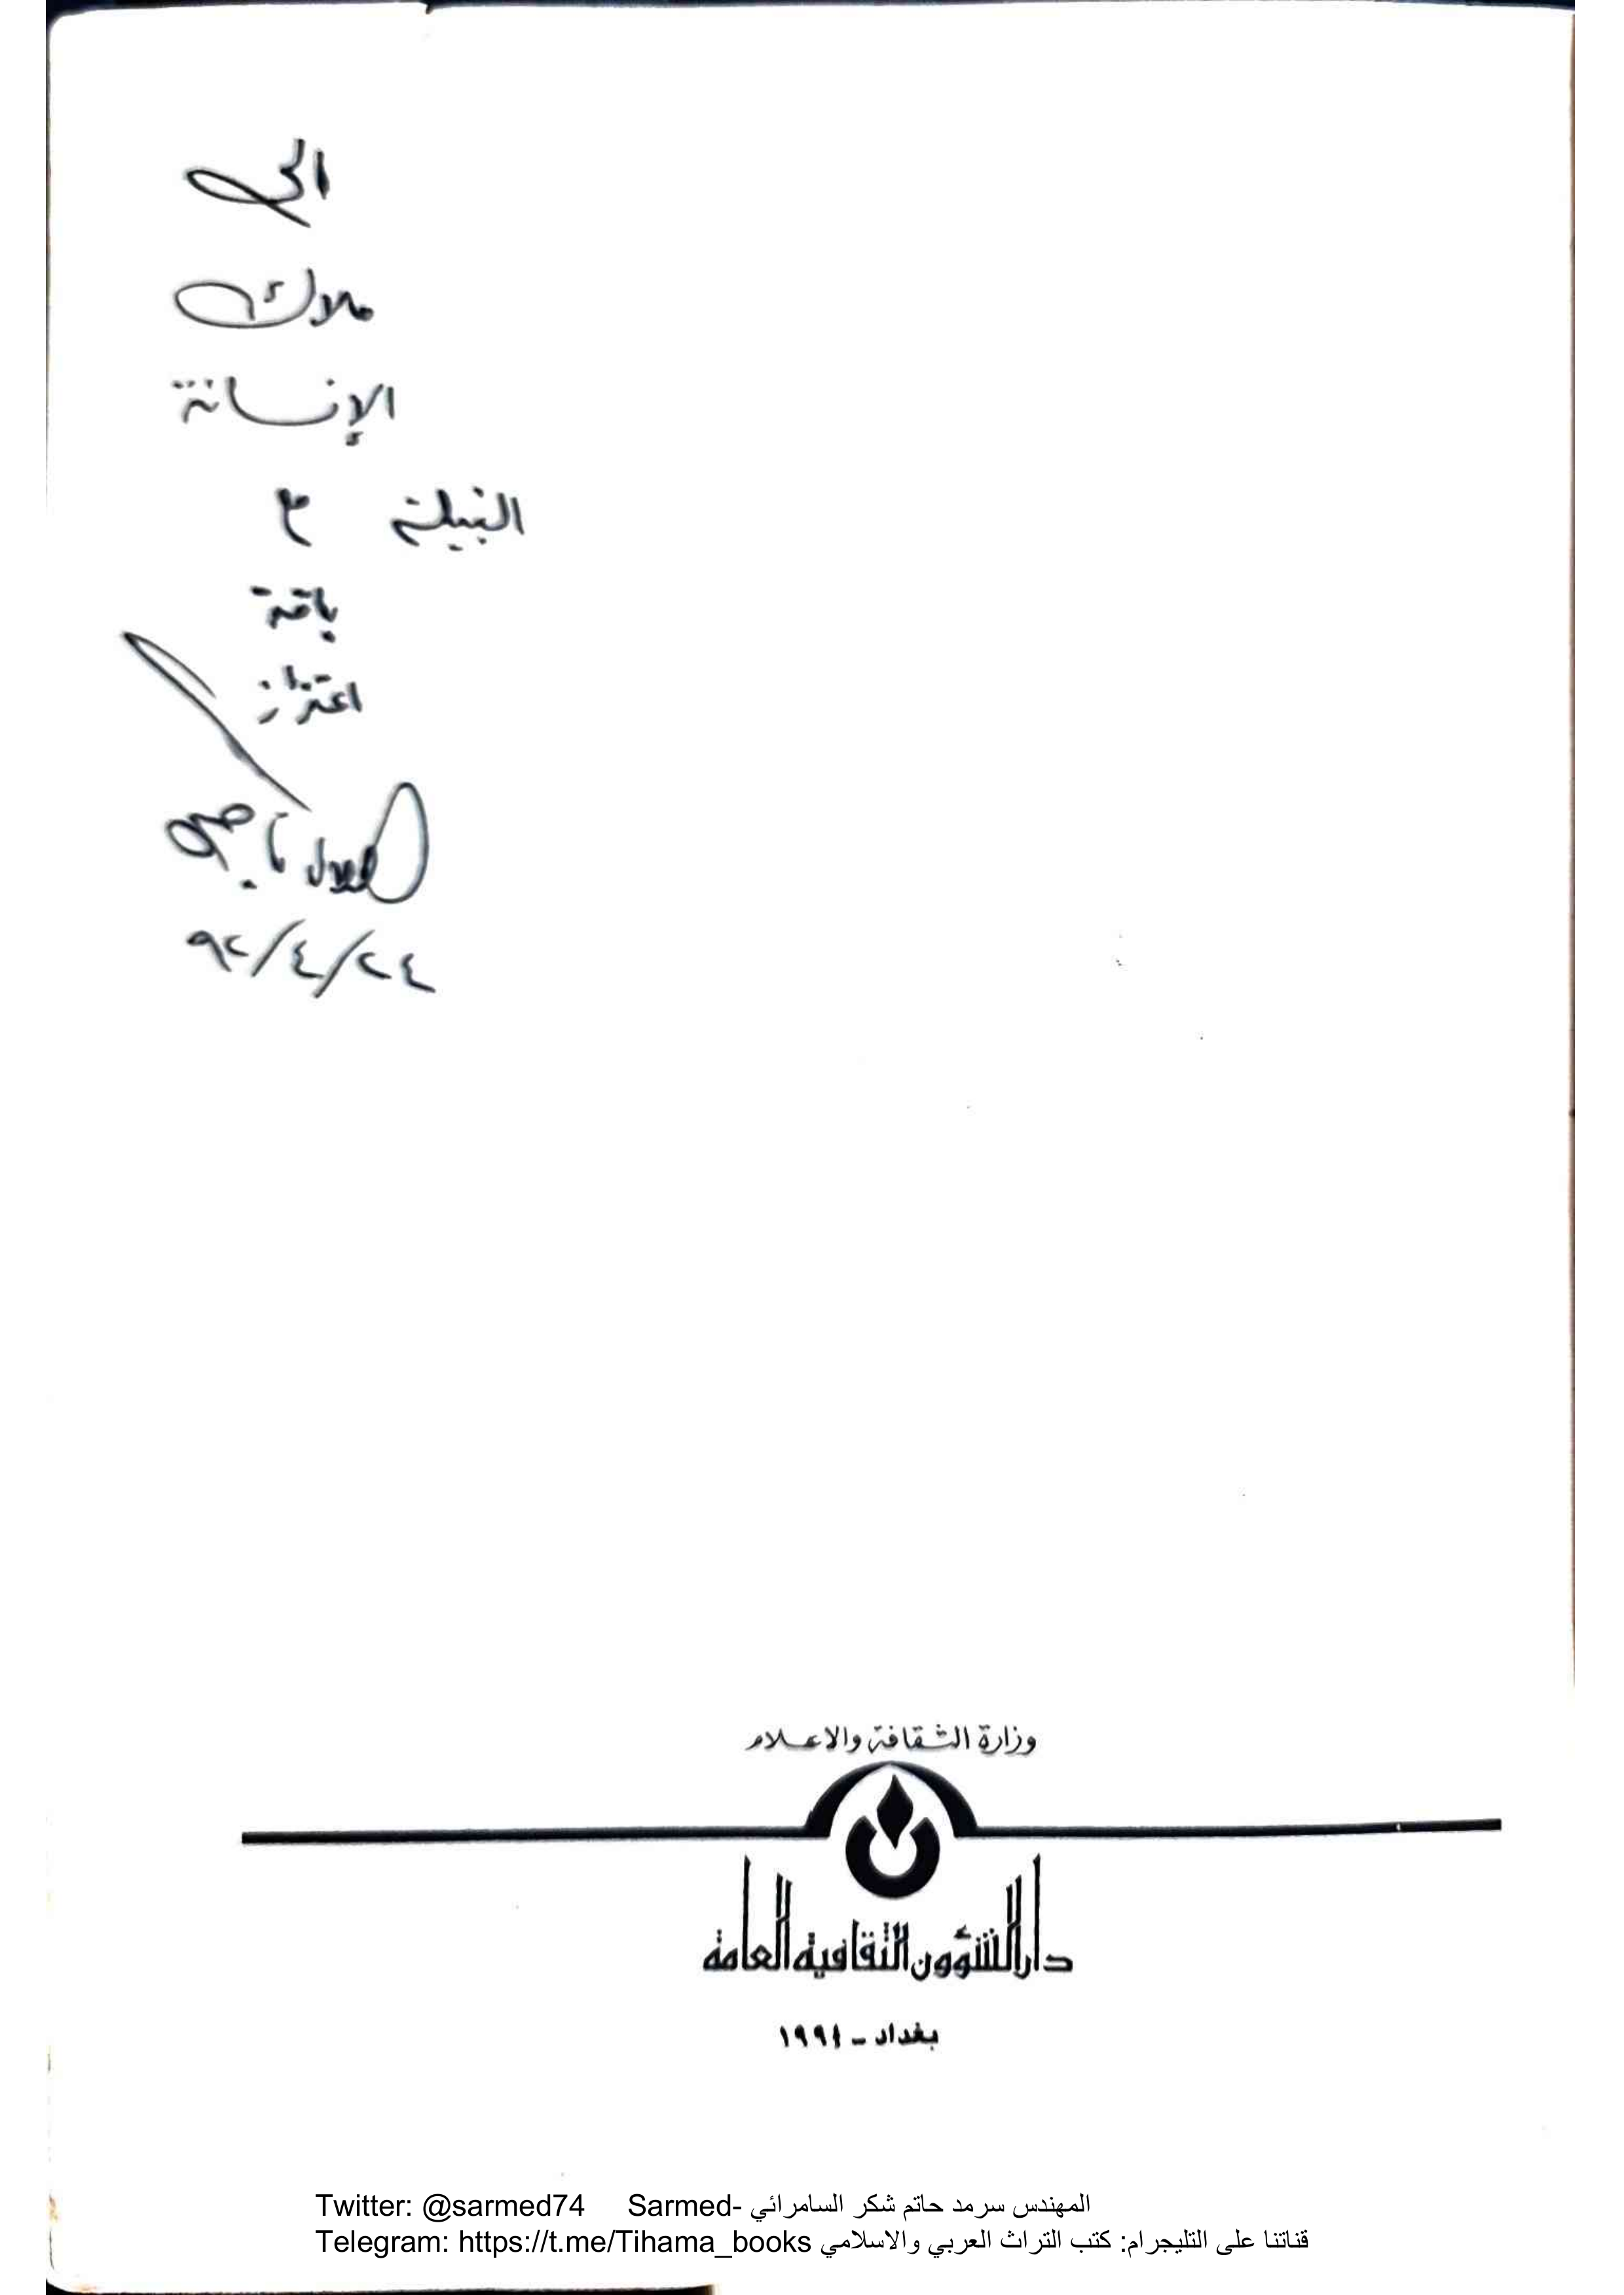 الى
ملاك
الإنسانة
النبيلة مع
باقة
اعتزاز
هلال ناجي
٩٢/٤/٢٤
وزارة الثقافة والاعلام
دار الشؤون الثقافية العامة
بغداد - ١٩٩١
Twitter: @sarmed74 Sarmed- المهندس سرمد حاتم شكر السامرائي
Telegram: https://t.me/Tihama_books قناتنا على التليجرام: كتب التراث العربي والاسلامي